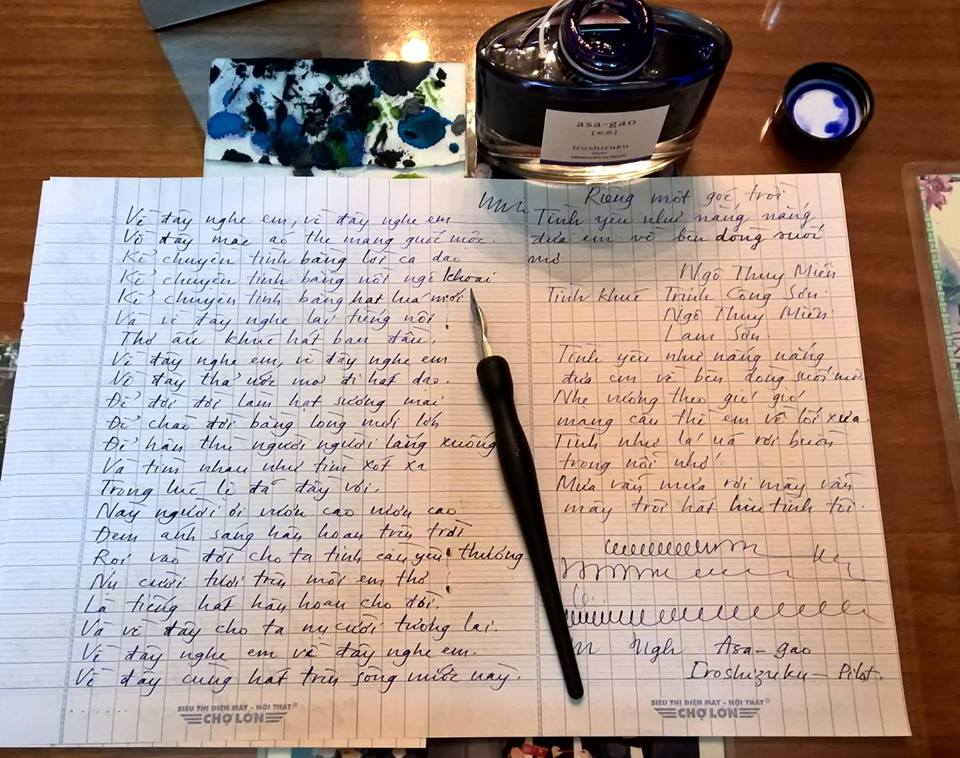 asa-gao
iroshizuku
Về đây nghe em, về đây nghe em
Về đây mặc áo the mang guốc mộc.
Kể chuyện tình bằng lời ca dao
Kể chuyện tình bằng nồi ngô khoai
Kể chuyện tình bằng hạt lúa mới
Và về đây nghe lại tiếng nói
Thơ ấu khúc hát ban đầu.
Về đây nghe em, về đây nghe em
Về đây thả ước mơ đi hát dạo.
Để đời đời làm hạt sương mai
Để chào đời bằng lòng mới lớn
Để hận thù người người lắng xuống
Và tìm nhau như tìm xót xa
Trong lúc lệ đã đầy vơi.
Này người ơi vươn cao vươn cao
Đem ánh sáng hân hoan trên trời
Rọi vào đời cho ta tình cầu yêu thương
Nụ cười tươi trên môi em thơ
Là tiếng hát hân hoan cho đời.
Và về đây cho ta nụ cười tương lai.
Về đây nghe em về đây nghe em.
Về đây cùng hát trên sông nước này.
SIÊU THỊ ĐIỆN MÁY - NỘI THẤT
CHỢ LỚN
Riêng một góc trời
Tình yêu như nắng nắng
đưa em về bên dòng suối
mơ
Ngô Thụy Miên
Tình khúc Trịnh Công Sơn
Ngô Thụy Miên
Lam Sơn
Tình yêu như nắng nắng
đưa em về bên dòng suối mơ
Nhẹ vương theo gió gió
mang câu thề em về lối xưa
Tình như lá úa rơi buồn
trong nỗi nhớ
Mưa vẫn mưa rơi mây vẫn
mây trôi hát hiu tình tôi.
Ngh Asa-gao
Iroshizuku - Pilot.
SIÊU THỊ ĐIỆN MÁY - NỘI THẤT
CHỢ LỚN